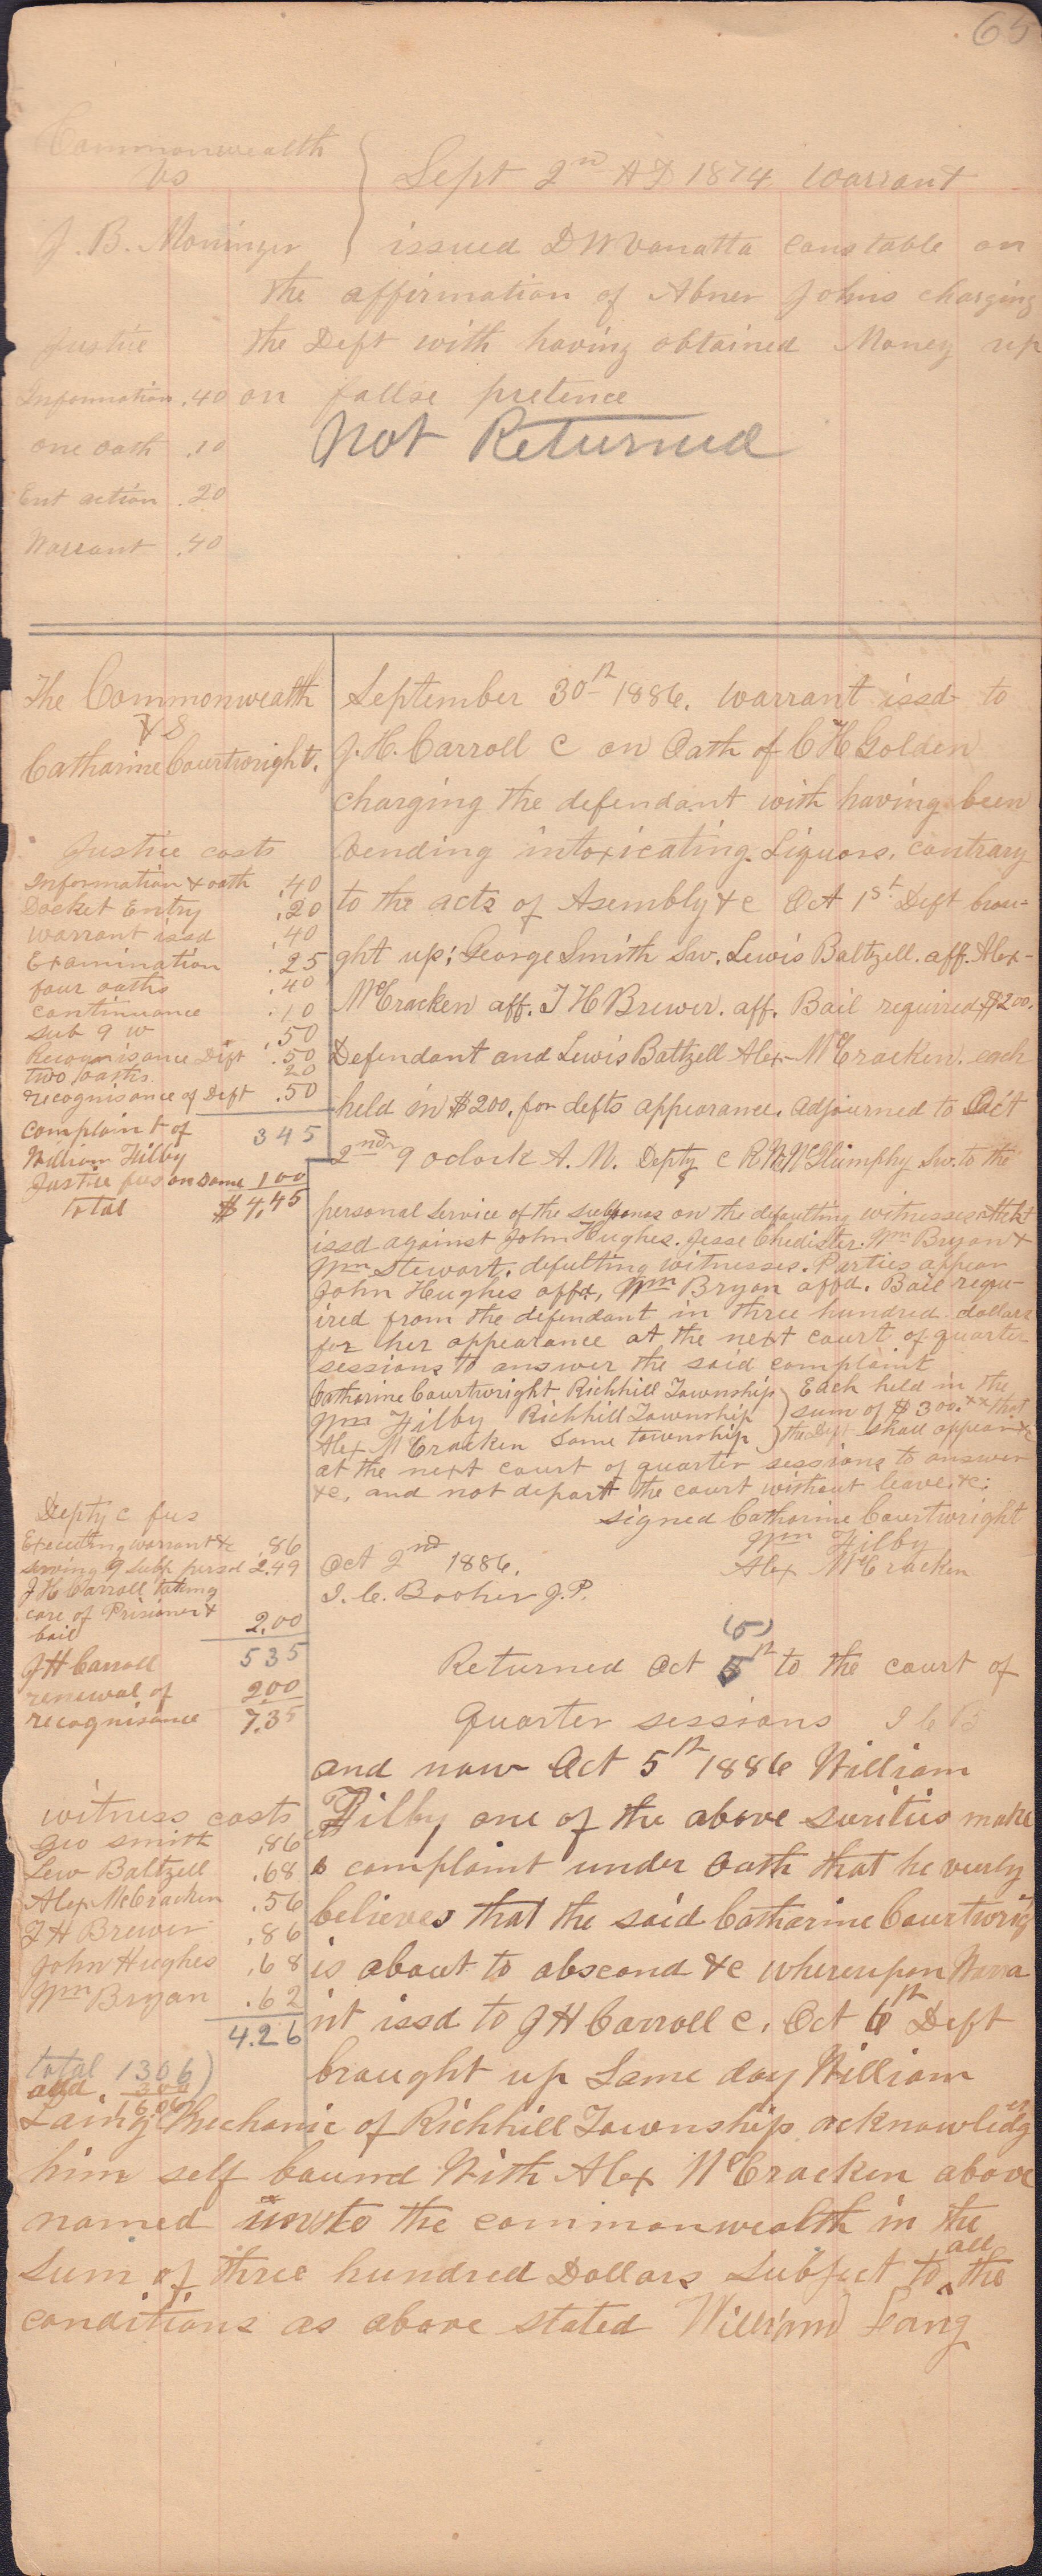 65
Commonwealth
vs
J. B. Moninger
Sept 2nd AD 1874 warrant
issued D W Vanatta Constable on
the affirmation of Abner Johns charging
the Deft with having obtained Money up
on fallse pretence
Not Returned
Justice
Information .40
one oath .10
Ent action .20
Warrant .40
The Commonwealth
VS
Catharine Courtwright.
Justice costs
Information & oath .40
Docket Entry .20
warrant issd .40
Examination .25
four oaths .40
continuance .10
sub 9 w .50
Recognisance Dift .50
two oaths 20
recognisance of Deft .50
3 45
complaint of
William Filby
Justice fees on same 1 00
total $4,45
September 30th 1886. warrant issd to
J. H. Carroll C on Oath of C H Golden
charging the defendant with having been
vending intoxicating Liquors. contrary
to the acts of Asembly &c Oct 1st Deft brou-
ght up; George Smith Sw. Lewis Baltzell. aff. Alex-
McCracken aff. J H Brewer. aff. Bail required $200.
Defendant and Lewis Baltzell Alex McCracken. each
held in $200. for defts appearance. adjourned to Oct
2nd 9 oclock A. M. Depty C R W McGlumphy Sw. to the
personal service of the subpenas on the defaulting witnesses atteht
issd against John Hughes. Jesse Chedister. Wm Bryan &
Wm Stewart. defulting witnesses. Parties appear
John Hughes affd, Wm Bryan affd. Bail requ-
ired from the defendant in three hundred dollars
for her appearance at the next court of quarter
sessions to answer the said complaint
Catharine Courtwright Richhill Township ) Each held in the
Wm Filby Richhill Township ) sum of $300.xx that
Alex McCracken Same township ) the Deft shall appear &c
at the next court of quarter sessions to answer
&c, and not depart the court without leave, &c:
signed Catharine Courtwright
Wm Filby
Alex McCracken
Oct 2nd 1886.
I. C. Booher J. P.
Depty C fees
Executing warrant &c .86
serving 9 subp persol 2.49
J H Carroll taking
care of Prisioner &
bail 2.00
5 35
J H Carroll
renewal of 2.00
recognisance 7.35
(5)
Returned Oct 5th to the court of
Quarter sessions I C B
and now Oct 5th 1886 William
Filby one of the above surities make
s complaint under Oath that he verly
believes that the said Catharine Courtwrig
is about to abscond &c whereupon Warra
nt issd to J H Carroll C. Oct 6th Deft
brought up Same day William
Laing Mechanic of Richhill Township acknowledg
es
him self bound With Alex McCracken above
named unto the commonwealth in the
Sum of three hundred Dollars Subject to all the
conditions as above stated William Laing
witness costs
Geo Smith .86
Lew Baltzell .68
Alex McCracken .56
J H Brewer .86
John Hughes .68
Wm Bryan .62
4.26
total 1306
add 300
1606